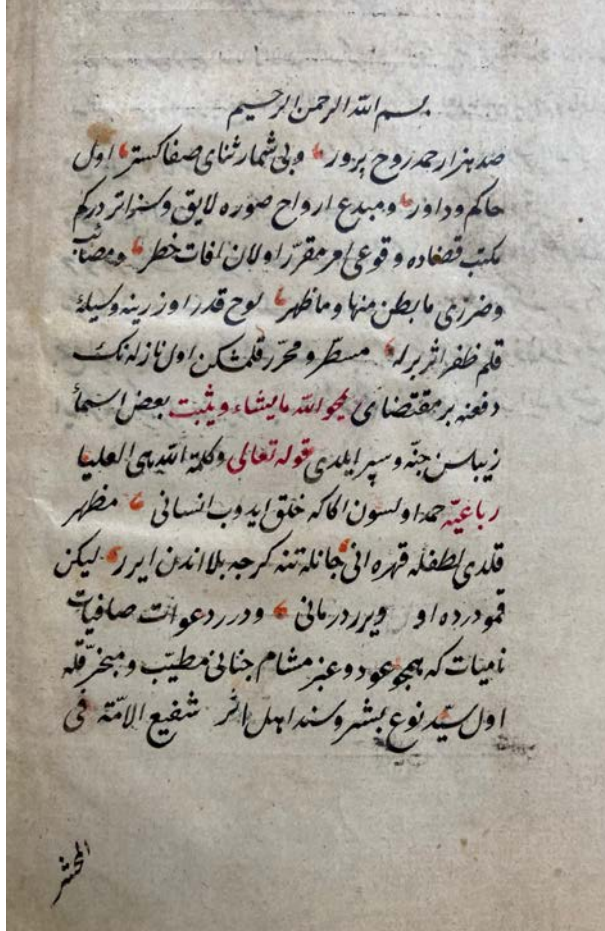 بسم الله الرحمن الرحيم
صد هزار حمد روح پرور و بی شمار ثنای صفا کستر اول
حاکم و داور و مبدع ارواح صوره لایق و سزاتر درکم
مکتب قضاده وقوعی امر مقرر اولان افات خطر و مصائب
وضرری ما بطن منها وما ظهر لوح قدر اوزرینه وسیلهٔ
قلم ظفر اثر برله مسطر و محرر قلمشکن اول نازله نک
دفعنه بر مقتضای یمحو الله ما یشاء ویثبت بعض اسمأ
زیباسن جنه و سپر ایلدی قوله تعالی وكلمة الله هی العلیا
رباعیه حمد اولسون اکا که خلق ایدوب انسانی مظهر
قلدی لطفله قهره انی جانله تنه کرچه بلا اندن ایرر لیکن
قمو درده او ویرر درمانی و درر دعوات صافیات
نامیات که همچو عود و عنبر مشام جنانی مطیب و مبخر قله
اول سید نوع بشر و سند اهل اثر شفیع الامة فی
المحشر